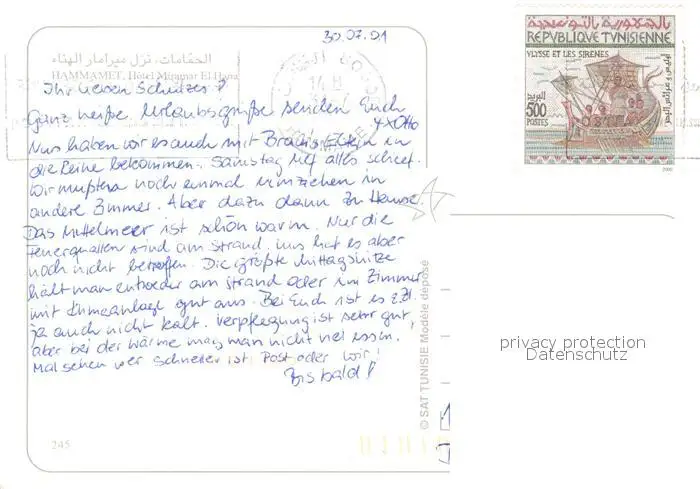 30.07.01
الحمّامات، نزل ميرامار الهناء
HAMMAMET, Hôtel Miramar El Hana
Ihr lieben Schulzes!
Ganz heiße Urlaubsgrüße senden Euch
4xOtto
Nun haben wir es auch mit Brauns Eltern in
die Reihe bekommen. Samstag lief alles schief.
Wir mußten noch einmal umziehen in
andere Zimmer. Aber dazu dann zu Hause.
Das Mittelmeer ist schön warm. Nur die
Feuerquallen sind am Strand. uns hat es aber
noch nicht betroffen. Die größte Mittagshitze
hält man entweder am Strand oder im Zimmer
mit Klimaanlage gut aus. Bei Euch ist es z.Zt.
ja auch nicht kalt. Verpflegung ist sehr gut,
aber bei der Wärme mag man nicht viel essen.
Mal sehen wer schneller ist Post oder wir!
Bis bald!
245
© SAT TUNISIE Modèle déposé
الجمهورية التونسية
REPUBLIQUE TUNISIENNE
ULYSSE ET LES SIRENES
أوليس وعرائس البحر
البريد
500
POSTES
2000
privacy protection
Datenschutz